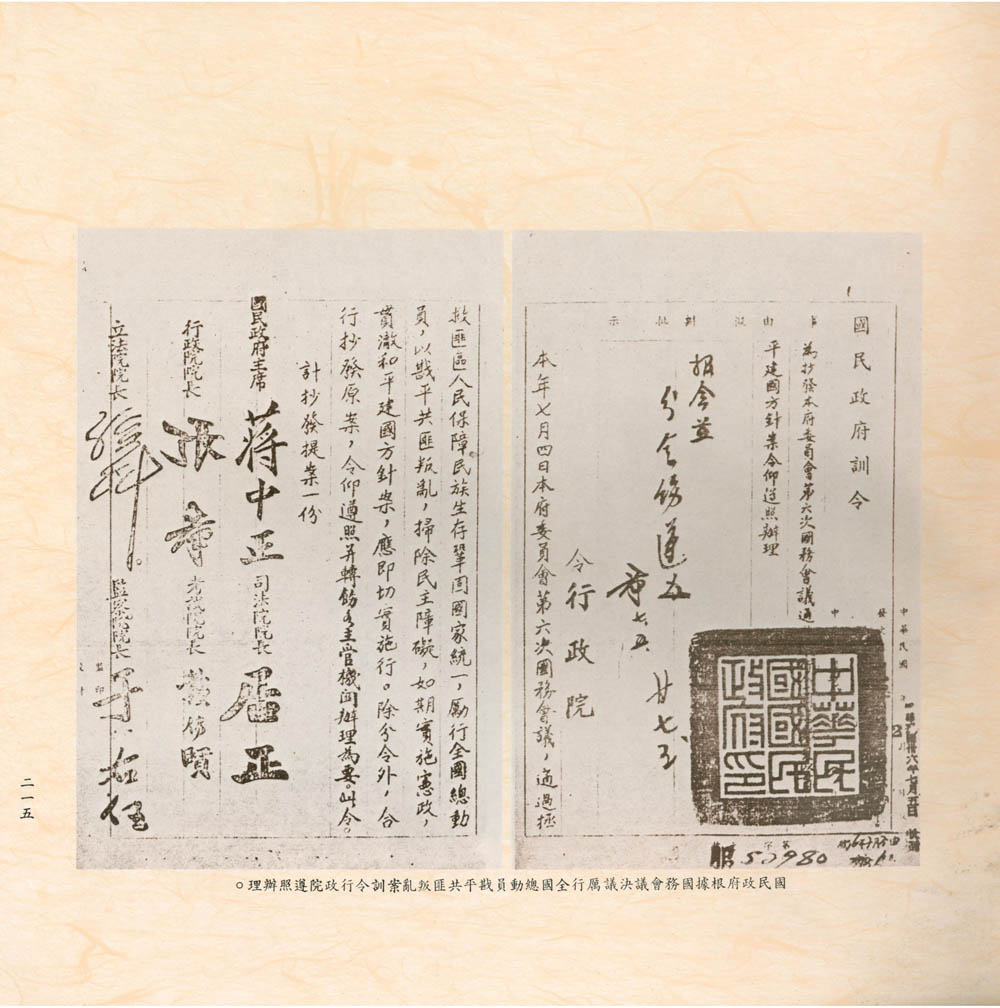 國民政府訓令
事由擬辦批示
為抄發本府委員會第六次國務會議通
平建國方針案令仰遵照辦理
中華民國
中華民國國民政府印
令行政院
本年七月四日本府委員會第六次國務會議，通過拯
50980
救匪區人民保障民族生存鞏固國家統一，厲行全國總動
員，以戡平共匪叛亂，掃除民主障礙，如期實施憲政，
貫澈和平建國方針案，應即切實施行。除分令外，合
行抄發原案，令仰遵照并轉飭主管機關辦理為要。此令。
計抄發提案一份
國民政府主席 蔣中正
司法院院長 居正
行政院院長 張羣
考試院院長
立法院院長
監察院院長 于右任
國民政府根據國務會議決議厲行全國總動員戡平共匪叛亂案訓令行政院遵照辦理。
二一五